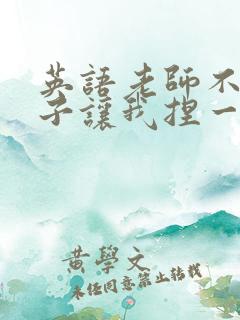 英語老師不
子讓我捏一
黃學文
未任同意禁止转载